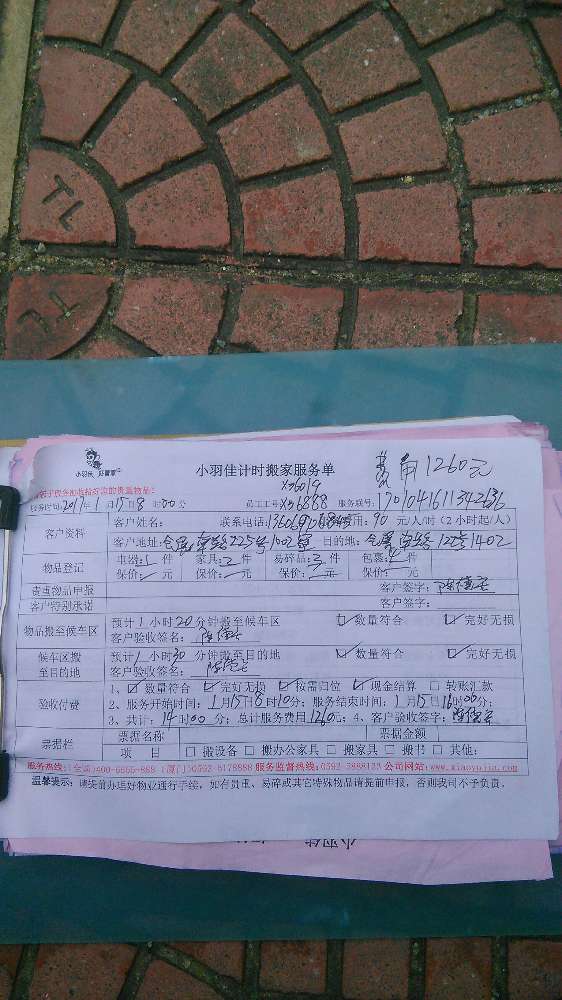 TL
TL
小羽佳 好管家
小羽佳计时搬家服务单
费用1260元
X36019
服务时间: 2017年1月15日8时00分 员工工号: X36888 服务联号:
客户资料
客户姓名: 联系电话: 用: 90 元/人/时 (2小时起/人)
客户地址: 目的地:
物品登记
电器: 件 家具: 件 易碎品: 件 包裹: 件
保价: 元 保价: 元 保价: 元 保价: 元
贵重物品申报 客户签字:
客户特别承诺 客户签字:
物品搬至候车区
预计1小时20分钟搬至候车区 ☑数量符合 ☑完好无损
客户验收签名:
候车区搬至目的地
预计1小时30分钟搬至目的地 ☑数量符合 ☑完好无损
客户验收签名:
验收付费
1、☑数量符合 ☑完好无损 ☑按需归位 ☑现金结算 □转账汇款
2、服务开始时间: 1月15日8时10分; 服务结束时间: 1月15日16时00分;
3、共计: 14时00分; 总计服务费用1260元; 4、客户验收签字:
票据栏
票据名称 票据金额
项 目 □搬设备 □搬办公家具 □搬家具 □搬书 □其他:
服务热线: (全国) 400-6666-888 (厦门) 0592-6178888 服务监督热线: 0592-3888123 公司网站: www.xiaoyujia.com
温馨提示: 请提前办理好物业通行手续, 如有贵重、易碎或其它特殊物品请提前申报, 否则我司不予负责。